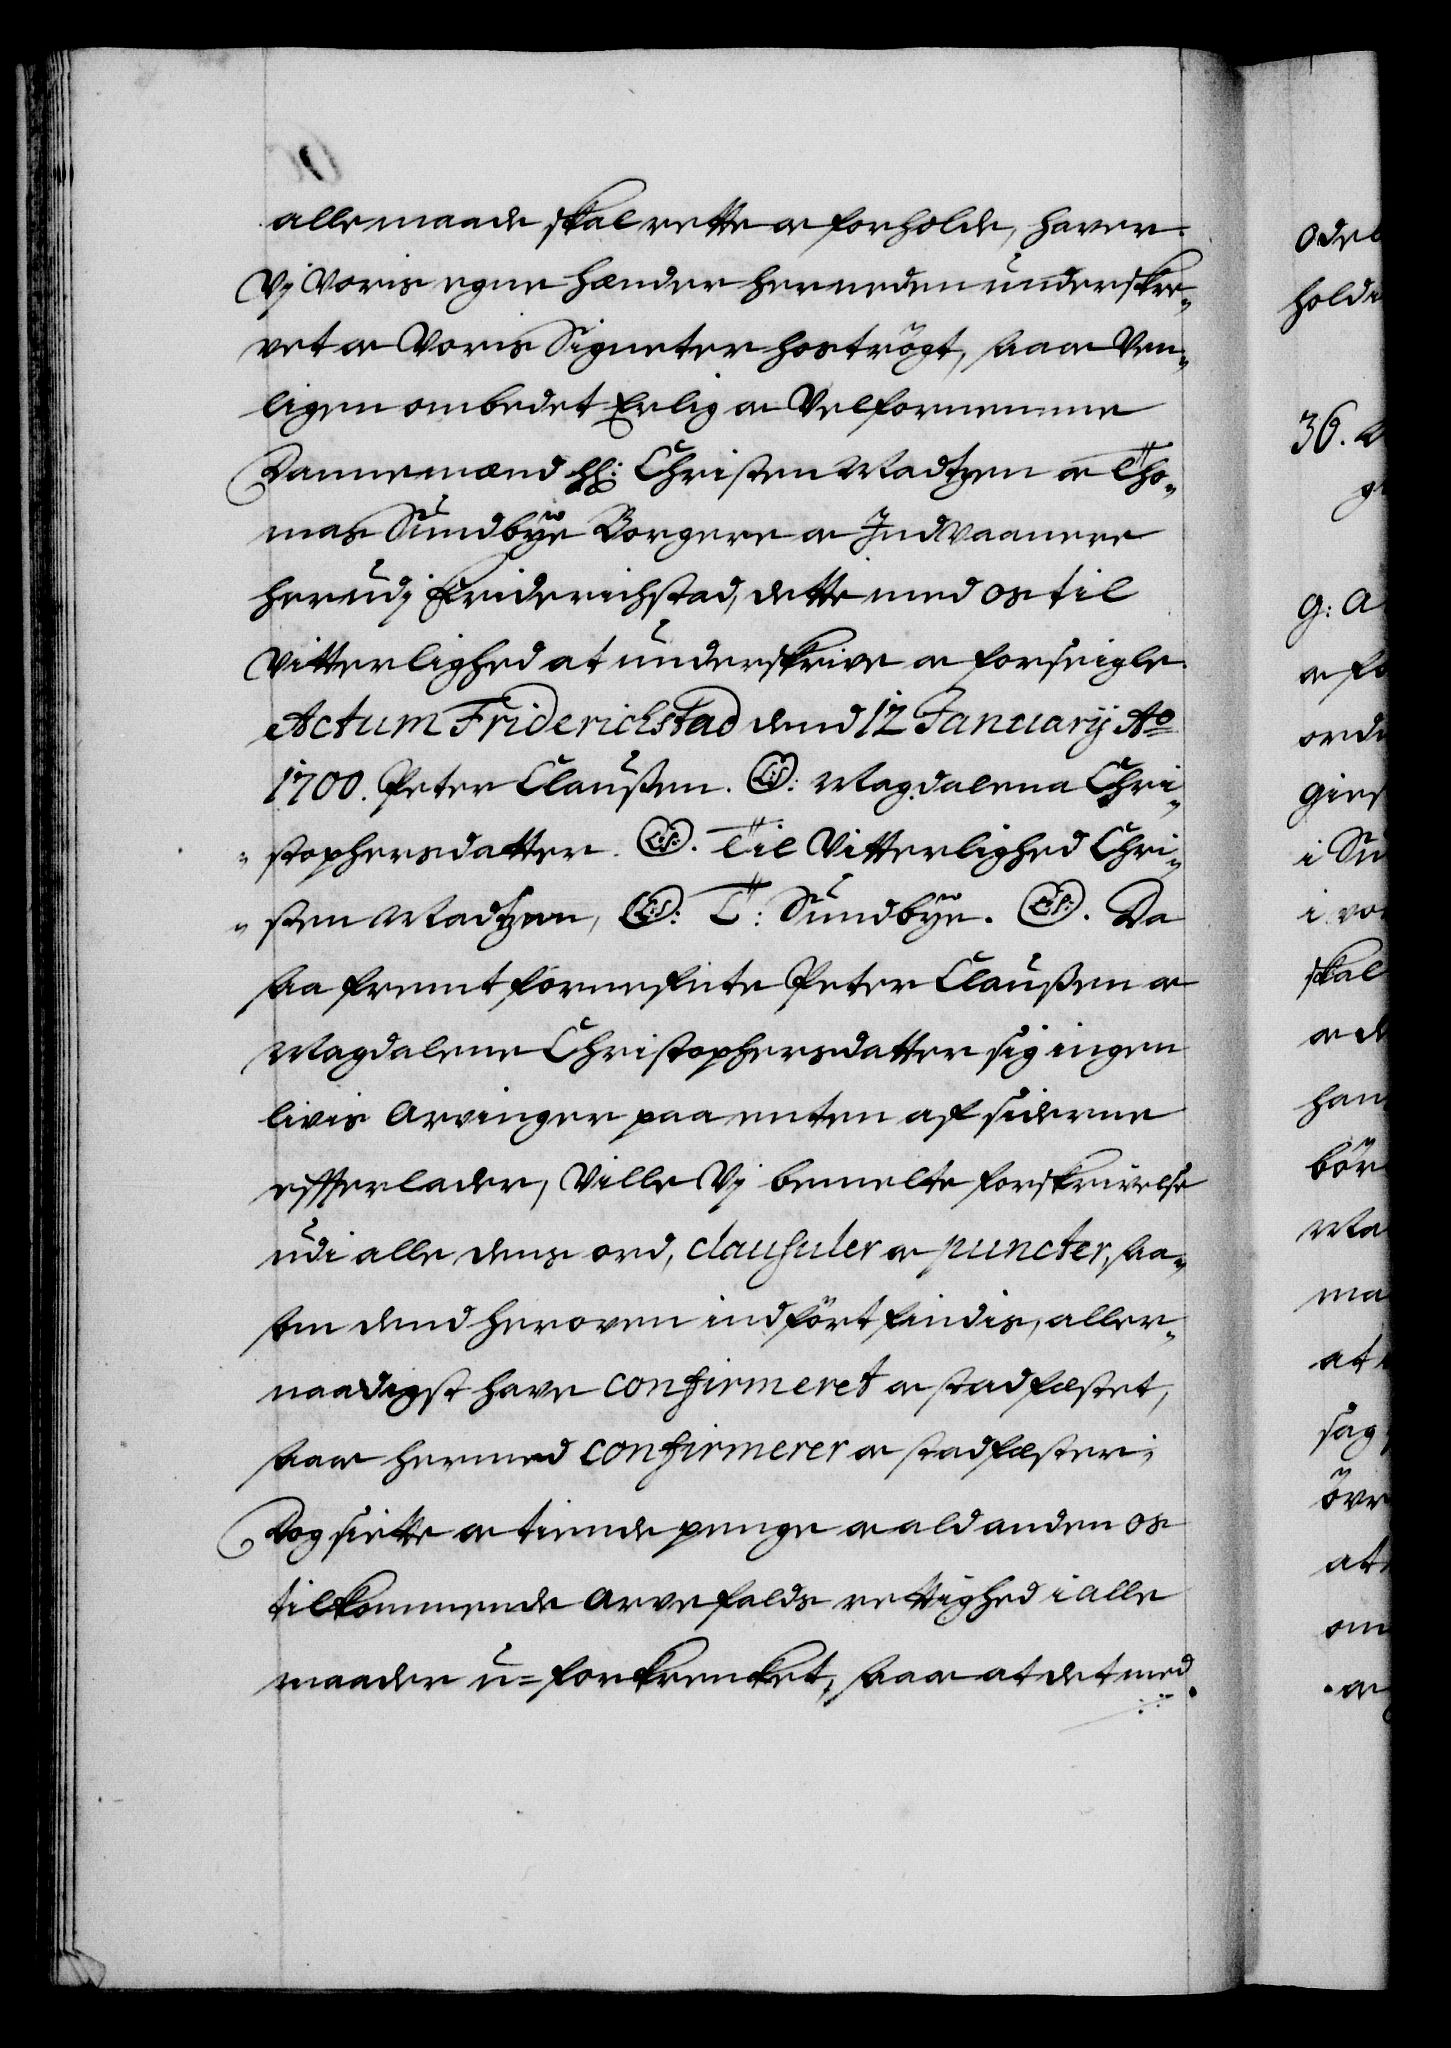 alle maade skal rette og forholde, haver
Vj Voris egne hænder herneden underskre,,
vet og Voris Signeter hoströgt, saa og Ven,,
ligen ombedet Erlig og Velfornemme
Dannemænd hh: Christen Madtzen og Tho,,
mas Sundbÿe Borgere og Indvaanere
herudj Friderichstad, dette med os til
Vitterlighed at underskrive og forseigle.
Actum Friderichstad dend 12 Januarij Ao
1700. Peter Claußen. L:S: Magdalena Chri,,
,,stophersdatter. L:S:. Til Vitterlighed Chri,,
,,sten Madtzen, L:S: T: Sundbÿe. L:S:. Da
saafremt formelte Peter Claußen og
Magdalene Christophersdatter sig ingen
livis Arvinger paa enten af siderne
effterlader, Ville Vj bemelte forskrivelse
udi alle dens ord, clausuler og puncter, saa,,
som dend heroven indfört findis, aller,,
naadigst have confirmeret og stadfæstet,
saa og hermed confirmerer og stadfæster;
Dog siette og tiende penge og ald anden os
tilkommende Arvefalds rettighed i alle
maader u=forkrencket, saa og at det med
odel
holde
36.
g: A
og fo
orde
gies
i Su
i vo
skal
og d
han
bör
Ma
ma
at
sag
övr
at
om
og